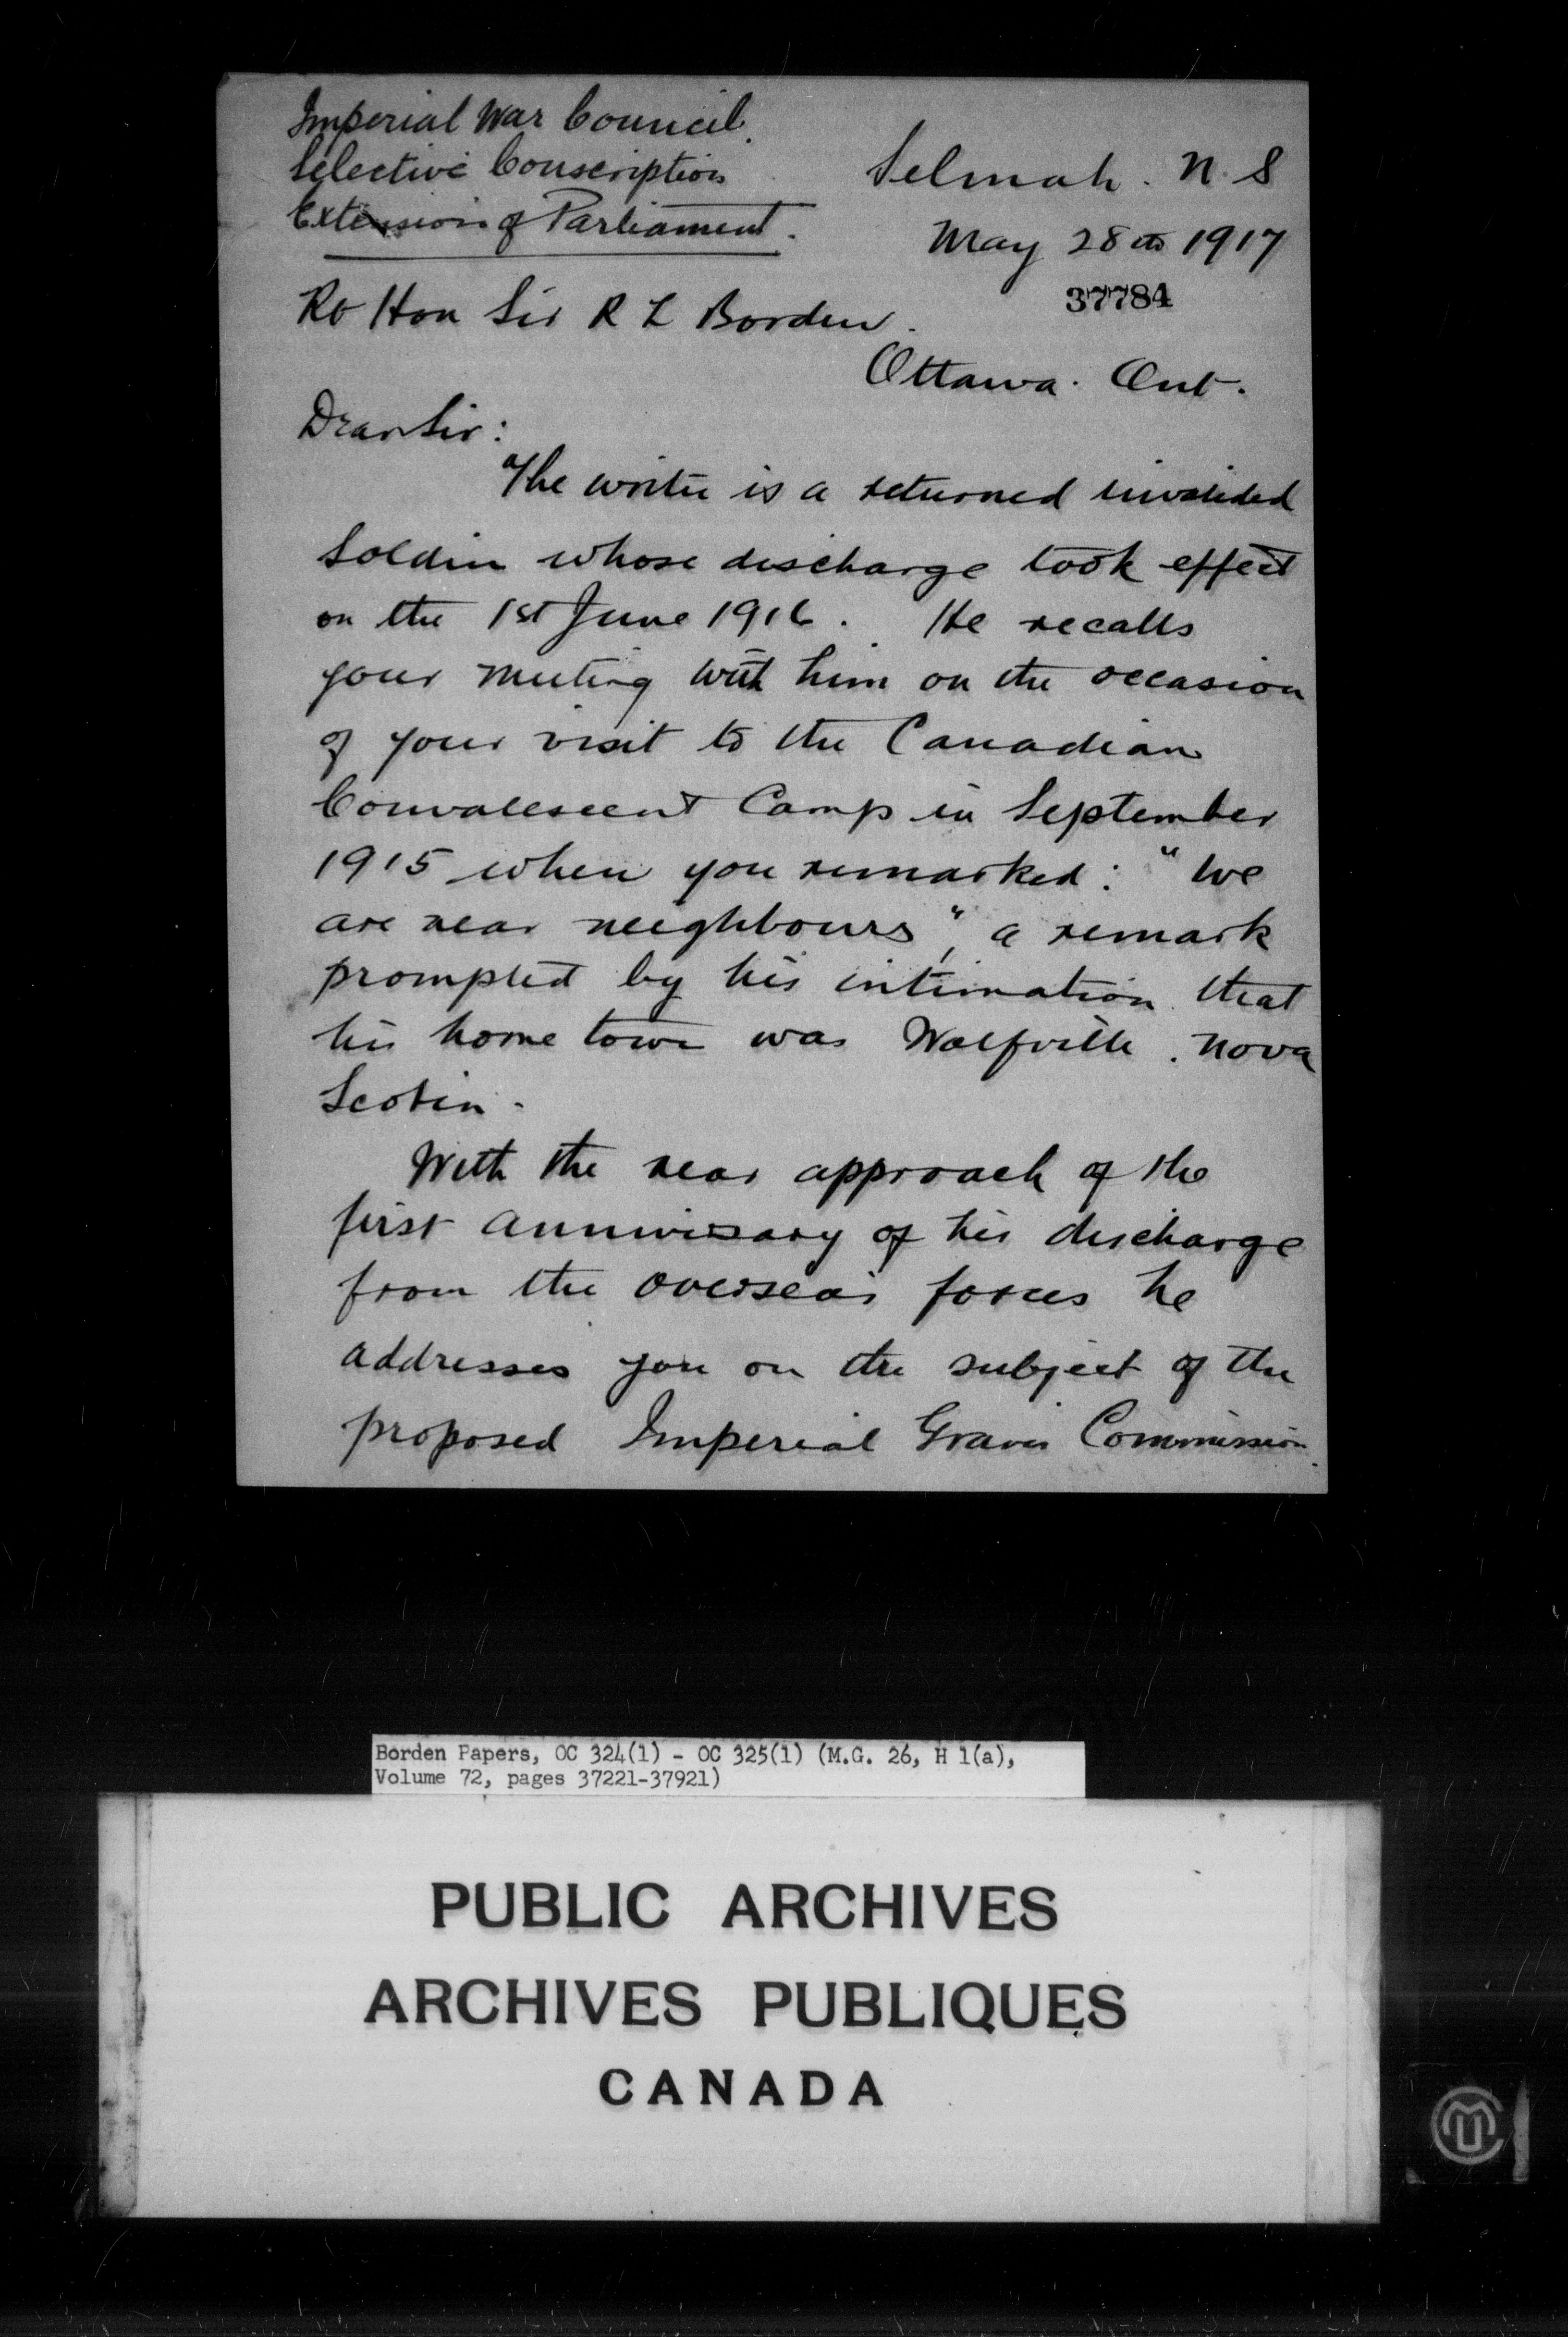 Imperial War Council.
Selective Conscription
Extension of Parliament.
Selmah. N. S
May 28th 1917
37784
Rt Hon Sir R L Borden.
Ottawa. Ont.
Dear Sir:
The writer is a returned invalided
soldier whose discharge took effect
on the 1st June 1916. He recalls
your meeting with him on the occasion
of your visit to the Canadian
Convalescent Camp in September
1915 when you remarked: "We
are near neighbours", a remark
prompted by his intimation that
his home town was Wolfville. Nova
Scotia.
With the near approach of the
first anniversary of his discharge
from the overseas forces he
addresses you on the subject of the
proposed Imperial Graves Commission.
Borden Papers, OC 324(1) - OC 325(1) (M.G. 26, H 1(a),
Volume 72, pages 37221-37921)
PUBLIC ARCHIVES
ARCHIVES PUBLIQUES
CANADA